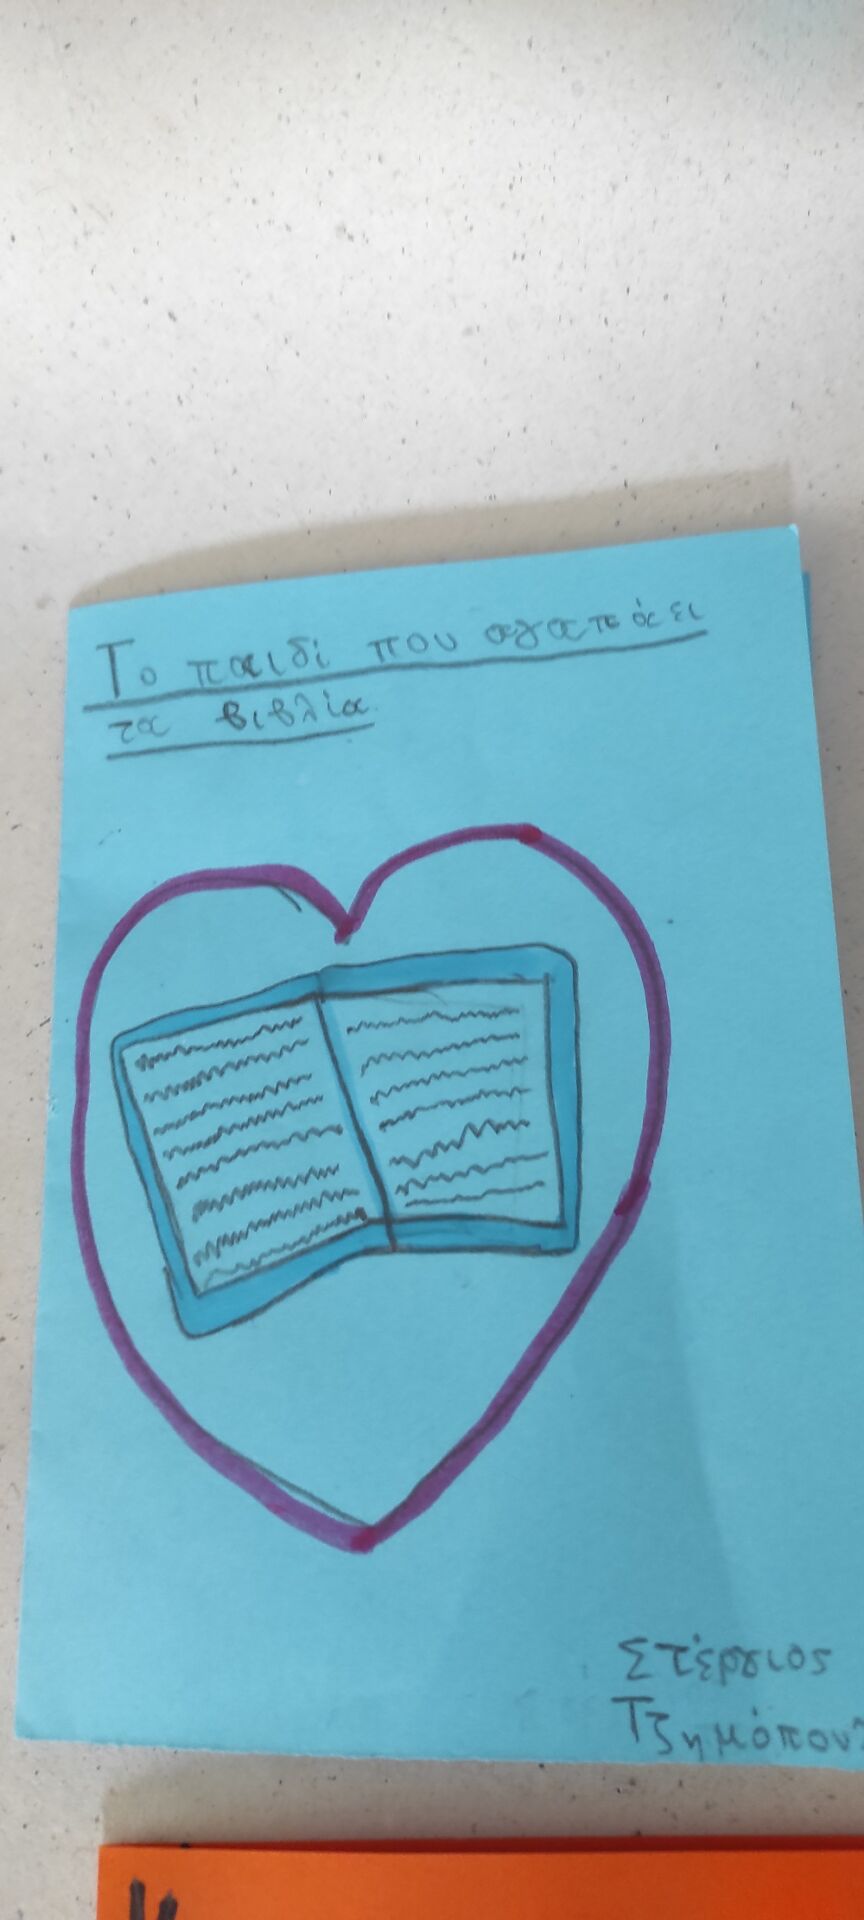 Το παιδί που αγαπάει
τα βιβλία
Στέργιος
Τζημόπουλ